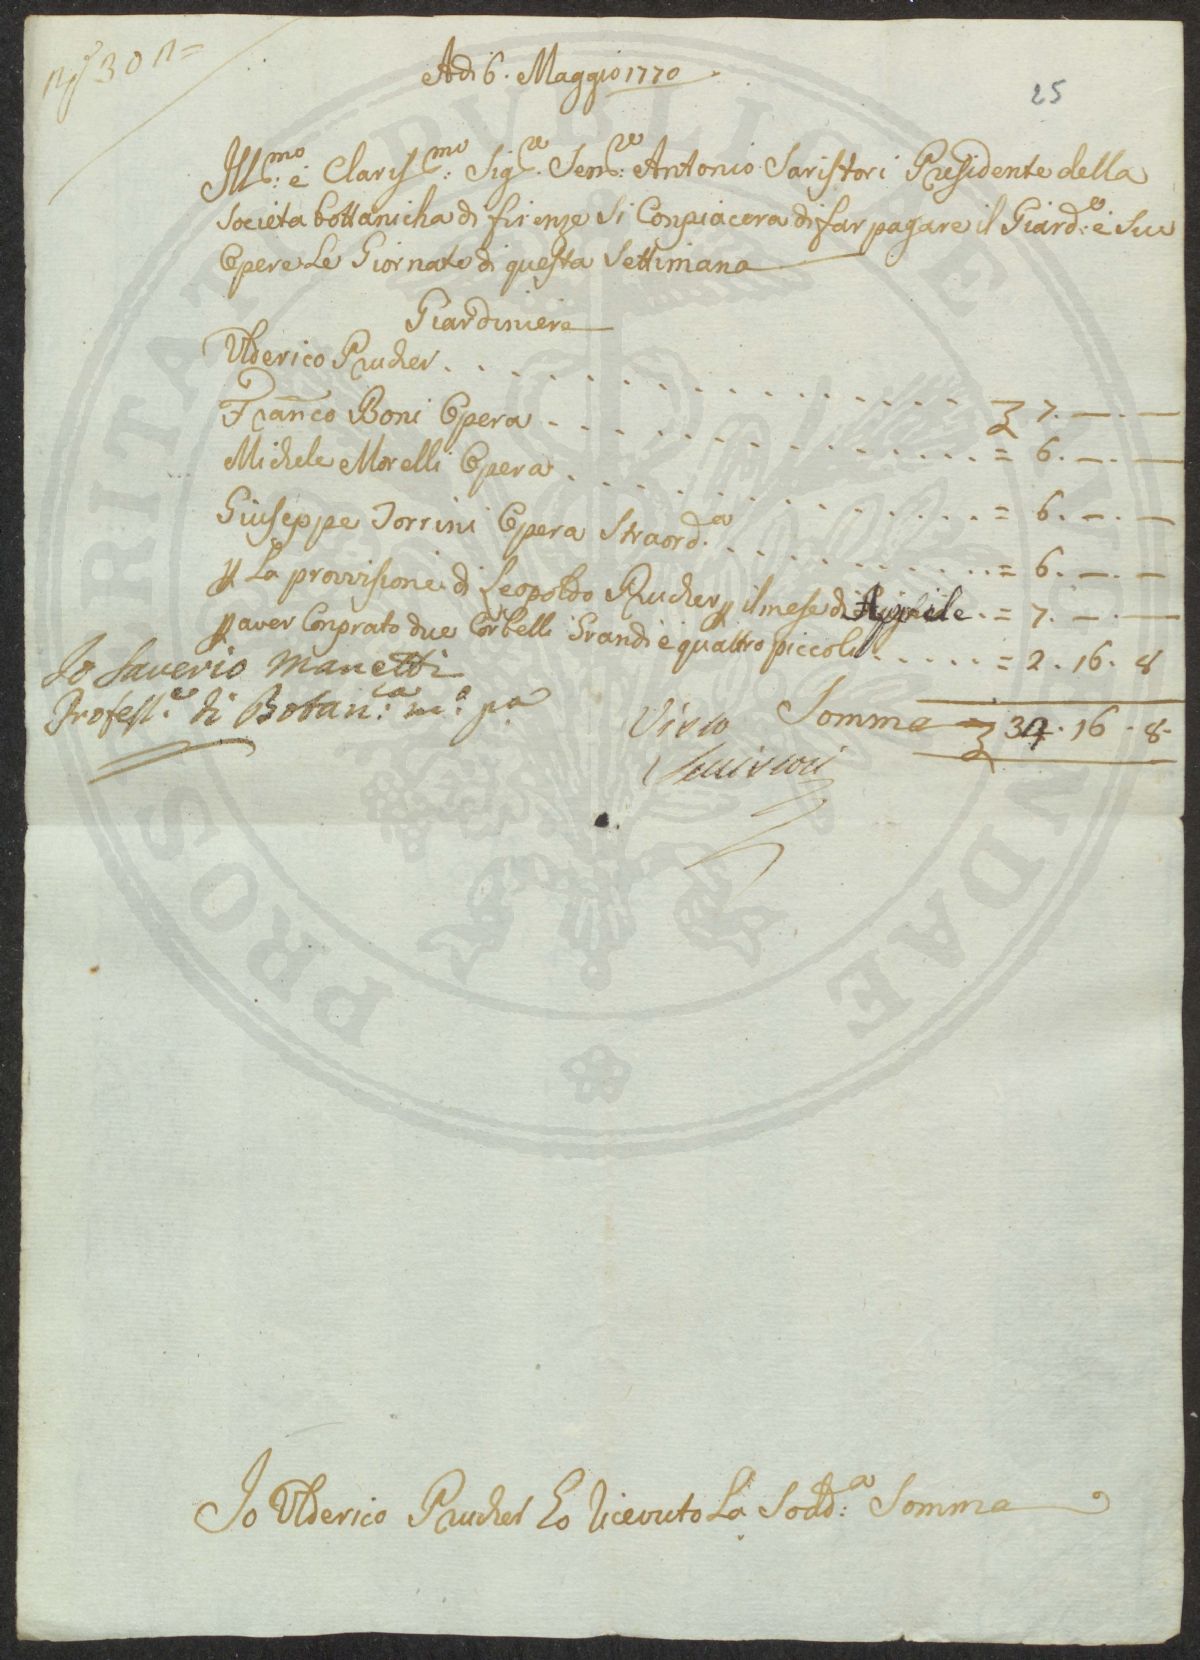 Adi 6. Maggio 1770
25
Ill.mo: è Claris.mo: Sig.re Sen.re: Antonio Saristori Presidente della
Società bottanicha di firenze Si Conpiacera di far pagare il Giard.e: è Sue
Opere Le Giornate di questa Settimana
Giardiniere
Ulderico Prucher . . . . . . . . . . . . . . . . 7. — . —
Franco Boni Opera . . . . . . . . . . . . . . . = 6. — . —
Michele Morelli Opera . . . . . . . . . . . . . = 6. — . —
Giuseppe Torrini Opera Straord.a . . . . . . . . . = 6. — . —
p La provvisione di Leopoldo Prucher p il mese di Aprile . = 7. — . —
p aver Conprato due Corbelli Grandi è quattro piccoli . . . . . = 2. 16. 8
Io Saverio Manetti
Profess.e di Botan.a m.o p.a
Visto
Somma 34. 16. 8.
Io Ulderico Prucher Ho ricevuto La Sodd.a: Somma
PROSPERITATI PUBLICAE AUGENDAE